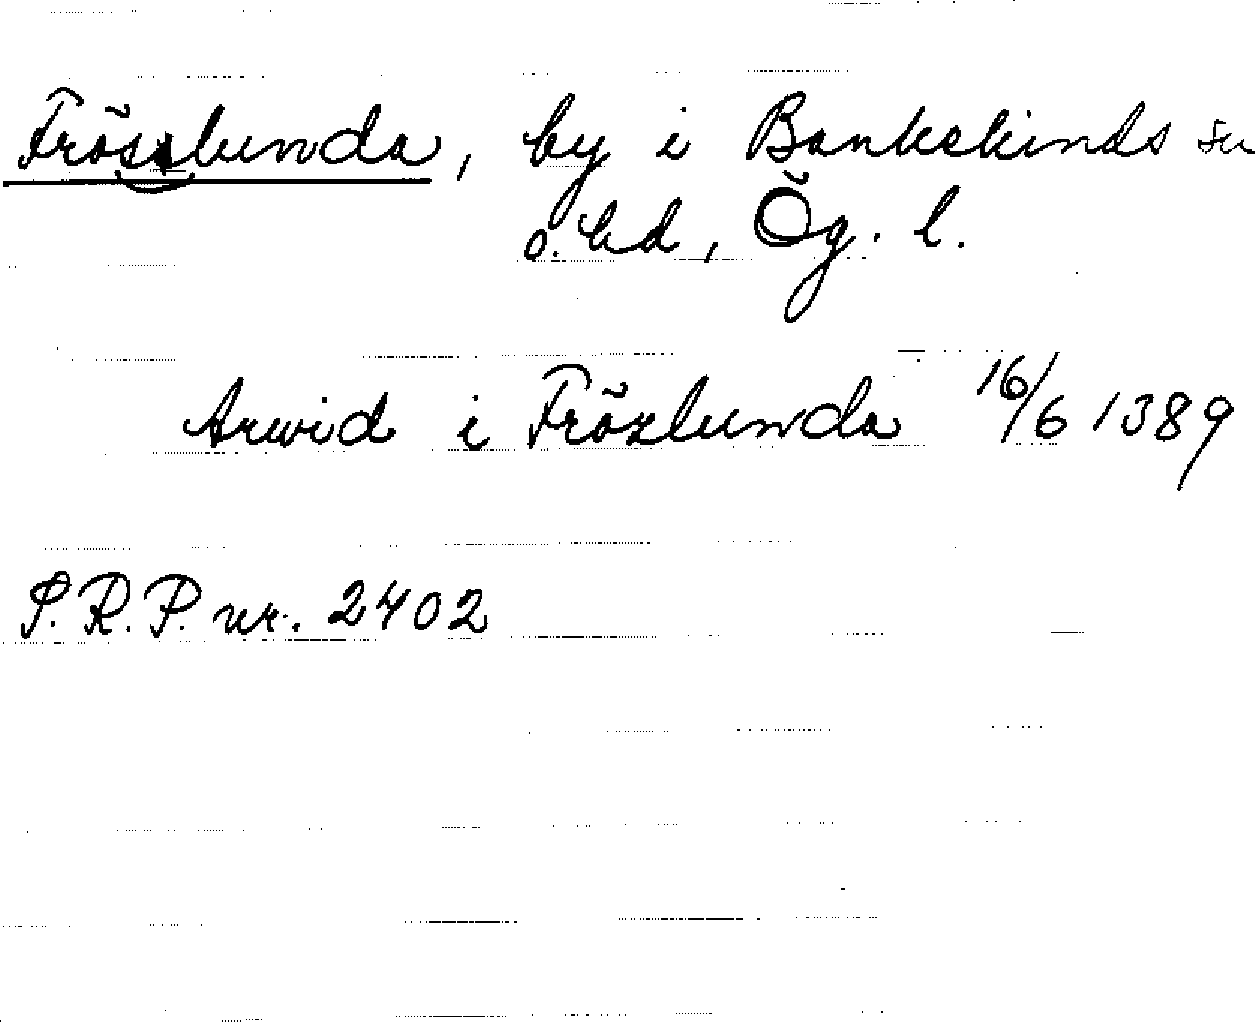 Fröslunda, by i Bankekinds sn
o. hd, Ög. l.
Arwid i Frözlunda 16/6 1389
S.R.P. nr. 2402